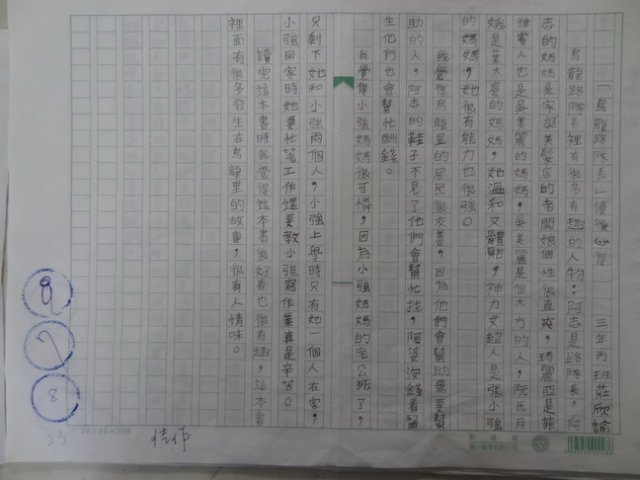 「烏龍路隊長」讀後心得 三年丙班莊欣諭
烏龍路隊長裡有很多有趣的人物：阿志是路隊長，阿
志的媽媽是家庭美髮店的老闆娘個性很直爽，瑪麗亞是菲
律賓人也是吳美麗的媽媽，吳美麗是個大方的人，阮氏月
娥是葉大雲的媽媽，她溫和又體貼，神力女超人是張小強
的媽媽，她很有能力也很強。
我覺得烏龍里的居民很友善，因為他們會幫助需要幫
助的人，阿志的鞋子不見了他們會幫忙找，阿婆沒錢看醫
生他們也會幫忙酬錢。
我覺得小強媽媽很可憐，因為小強媽媽的老公死了，
只剩下她和小強兩個人，小強上學時只有她一個人在家，
小強回家時她要忙著工作還要教小強寫作業真是辛苦。
讀完這本書時我覺得這本書很好看也很有趣，這本書
裡面有很多發生在烏龍里的故事，很有人情味。
8
7
8
23
佳作